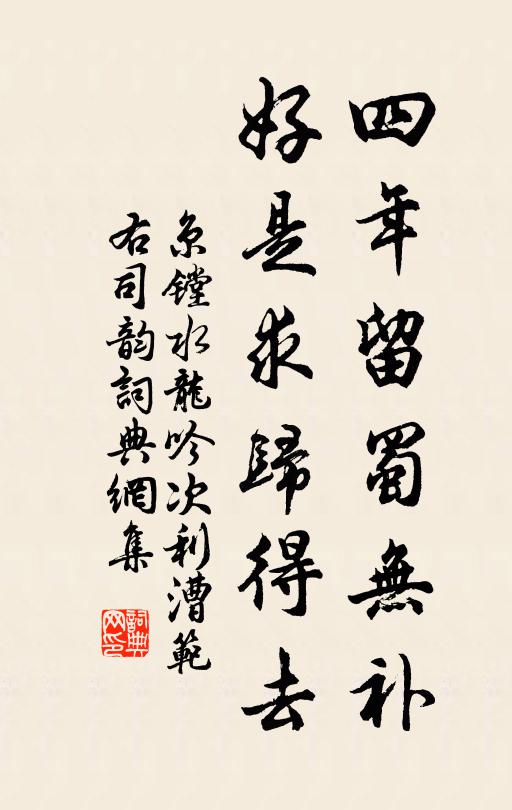 四年留蜀無补
好是求歸得去
京鏜水龍吟次利漕範
右司韵詞典網集
詞典
网印